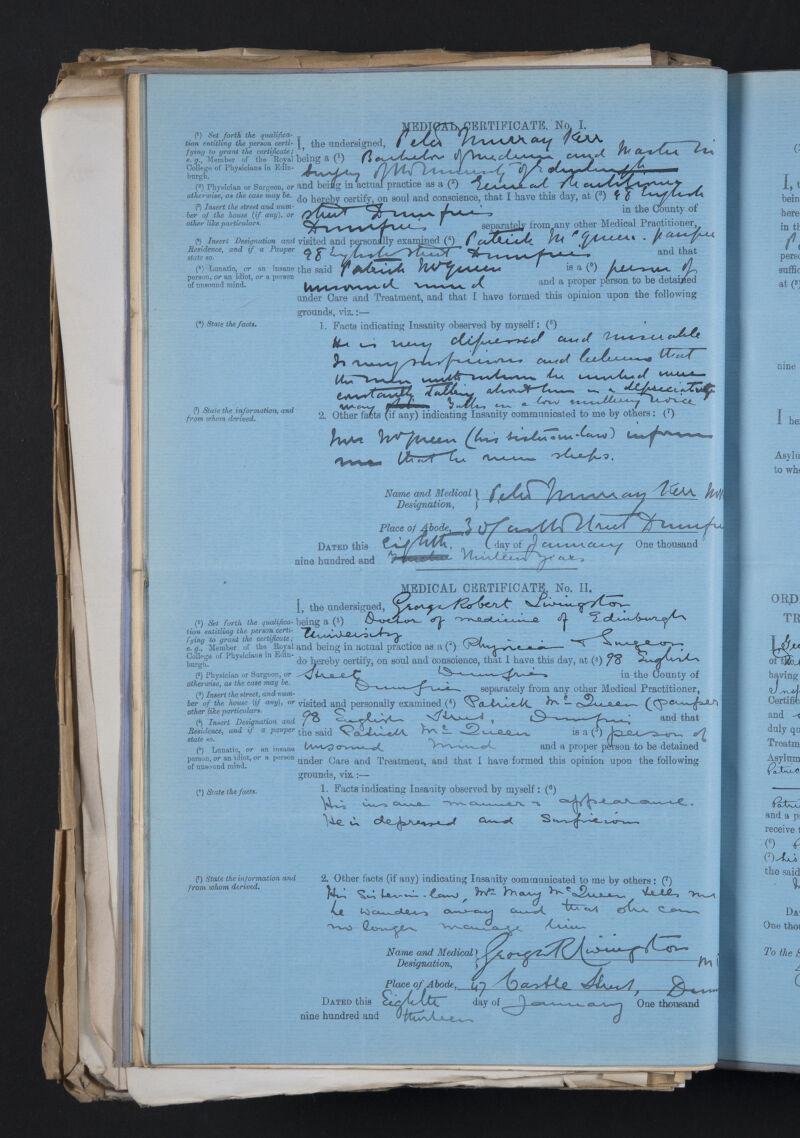 MEDICAL CERTIFICATE, No. I.
(1) Set forth the qualifica-
tion entitling the person certi-
fying to grant the certificate;
e. g., Member of the Royal
College of Physicians in Edin-
burgh.
(2) Physician or Surgeon, or
otherwise, as the case may be.
(3) Insert the street and num-
ber of the house (if any), or
other like particulars.
(4) Insert Designation and
Residence, and if a Pauper
state so.
(5) Lunatic, or an insane
person, or an idiot, or a person
of unsound mind.
I, the undersigned, Peter Murray Kerr
being a (1) Bachelor of medicine and Master in
Surgery of the University of Edinburgh
and being in actual practice as a (2) General Practitioner
do hereby certify, on soul and conscience, that I have this day, at (3) 98 English
Street Dumfries in the County of
Dumfries separately from any other Medical Practitioner,
visited and personally examined (4) Patrick McQueen. pauper
98 English Street Dumfries and that
the said Patrick McQueen is a (5) person of
unsound mind and a proper person to be detained
under Care and Treatment, and that I have formed this opinion upon the following
grounds, viz.:—
(6) State the facts.
1. Facts indicating Insanity observed by myself: (6)
He is very depressed and miserable
Is very suspicious and believes that
the men with whom he worked were
constantly talking about him in a depreciatory
way Talks in a low voice
(7) State the information, and
from whom derived.
2. Other facts (if any) indicating Insanity communicated to me by others: (7)
Mrs McQueen (his sister-in-law) informs
me that he never sleeps.
Name and Medical Designation, Peter Murray Kerr
Place of Abode, 30 Castle Street Dumfri
DATED this Eighth. day of January One thousand
nine hundred and Thirteen years
MEDICAL CERTIFICATE, No. II.
(1) Set forth the qualifica-
tion entitling the person certi-
fying to grant the certificate;
e. g., Member of the Royal
College of Physicians in Edin-
burgh.
(2) Physician or Surgeon, or
otherwise, as the case may be.
(3) Insert the street, and num-
ber of the house (if any), or
other like particulars.
(4) Insert Designation and
Residence, if a Pauper
state so.
(5) Lunatic, or an insane
person, or an idiot, or a person
of unsound mind.
I, the undersigned, George Robert Livingston
being a (1) Doctor of medicine of Edinburgh
University
and being in actual practice as a (2) Physician & Surgeon
do hereby certify, on soul and conscience, that I have this day, at (3) 98 English
Street Dumfries in the County of
Dumfries separately from any other Medical Practitioner,
visited and personally examined (4) Patrick McQueen (pauper
98 English Street, Dumfries and that
the said Patrick McQueen is a (5) person of
unsound mind and a proper person to be detained
under Care and Treatment, and that I have formed this opinion upon the following
grounds, viz.:—
(6) State the facts.
1. Facts indicating Insanity observed by myself: (6)
His insane manner & appearance.
He is depressed and suspicious
(7) State the information and
from whom derived.
2. Other facts (if any) indicating Insanity communicated to me by others: (7)
His Sister-in-law, Mrs Mary McQueen tells me
he wanders away and that she can
no longer manage him
Name and Medical Designation, George R Livingston
Place of Abode, 47 Castle Street, Dum
DATED this Eighth day of January One thousand
nine hundred and thirteen
I, t
bein
here
in th
perso
suffic
at (3)
nine
I he
Asylu
to wh
ORD
TR
of the
having
Certific
and
duly qu
Treatm
Asylum
and a p
receive
the said
DA
One thou
To the